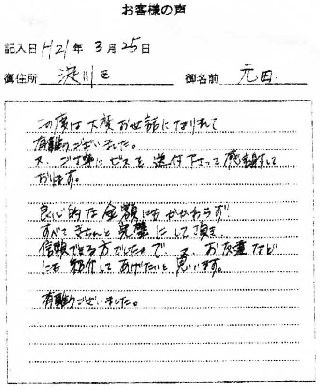 お客様の声
記入日 H21年 3月 25日
御住所 淀川区 御名前 元田
この度は大変お世話になりまして
有難うございました。
又、ご丁寧に 送付下さって感謝して
おります。
良心的な金額にもかかわらず
すべてきちんと完璧にして頂き
信頼できる方でしたので お友達など
にも紹介してあげたいと思います。
有難うございました。